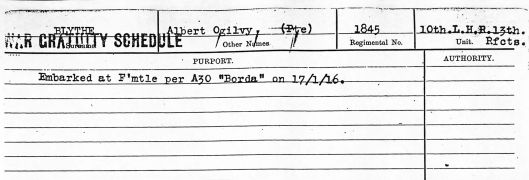 BLYTHE Albert Ogilvy, (Pte) 1845 10th.L.H.R.13th.
WAR GRATUITY SCHEDULE Rfcts.
Surname. Other Names Regimental No. Unit.
PURPORT. AUTHORITY.
Embarked at F'mtle per A30 "Borda" on 17/1/16.